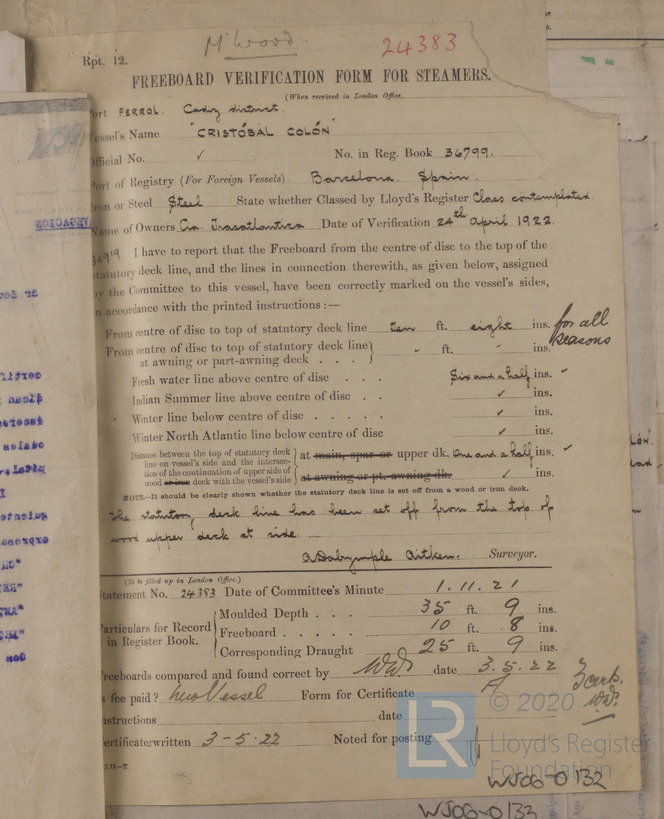 Mr Wood
24383
Rpt. 12.
FREEBOARD VERIFICATION FORM FOR STEAMERS.
(When received in London Office.
ort FERROL. Cadiz district.
essel's Name "CRISTÓBAL COLÓN"
fficial No. ✓ No. in Reg. Book 36799.
ort of Registry (For Foreign Vessels) Barcelona. Spain.
ron or Steel Steel State whether Classed by Lloyd's Register Class contemplated.
ame of Owners Cia. Trasatlantica Date of Verification 24th April 1922.
I have to report that the Freeboard from the centre of disc to the top of the
tatutory deck line, and the lines in connection therewith, as given below, assigned
y the Committee to this vessel, have been correctly marked on the vessel's sides,
n accordance with the printed instructions :—
From centre of disc to top of statutory deck line ten ft. eight ins. for all seasons
From centre of disc to top of statutory deck line at awning or part-awning deck . . . " ft. " ins.
Fresh water line above centre of disc . . . Six and a half ins. ✓
Indian Summer line above centre of disc . . ✓ ins.
Winter line below centre of disc . . . . . ✓ ins.
Winter North Atlantic line below centre of disc ✓ ins.
Distance between the top of statutory deck
line on vessel's side and the intersec-
tion of the continuation of upper side of
wood or iron deck with the vessel's side
at main, spar or upper dk. One and a half ins. ✓
at awning or pt. awning dk. ✓ ins.
NOTE.—It should be clearly shown whether the statutory deck line is set off from a wood or iron deck.
The statutory deck line has been set off from the top of
wood upper deck at side.
A Dalrymple Aitken. Surveyor.
(To be filled up in London Office.)
tatement No. 24383 Date of Committee's Minute 1.11.21
articulars for Record in Register Book.
Moulded Depth . . . 35 ft. 9 ins.
Freeboard . . . . . 10 ft. 8 ins.
Corresponding Draught 25 ft. 9 ins.
reeboards compared and found correct by WW date 3.5.22
s fee paid? New Vessel Form for Certificate A
3 certs.
WW.
nstructions date
ertificate written 3-5-22 Noted for posting
© 2020
LR
Lloyd's Register
Foundation
WJ06-0132
WJ06-0133